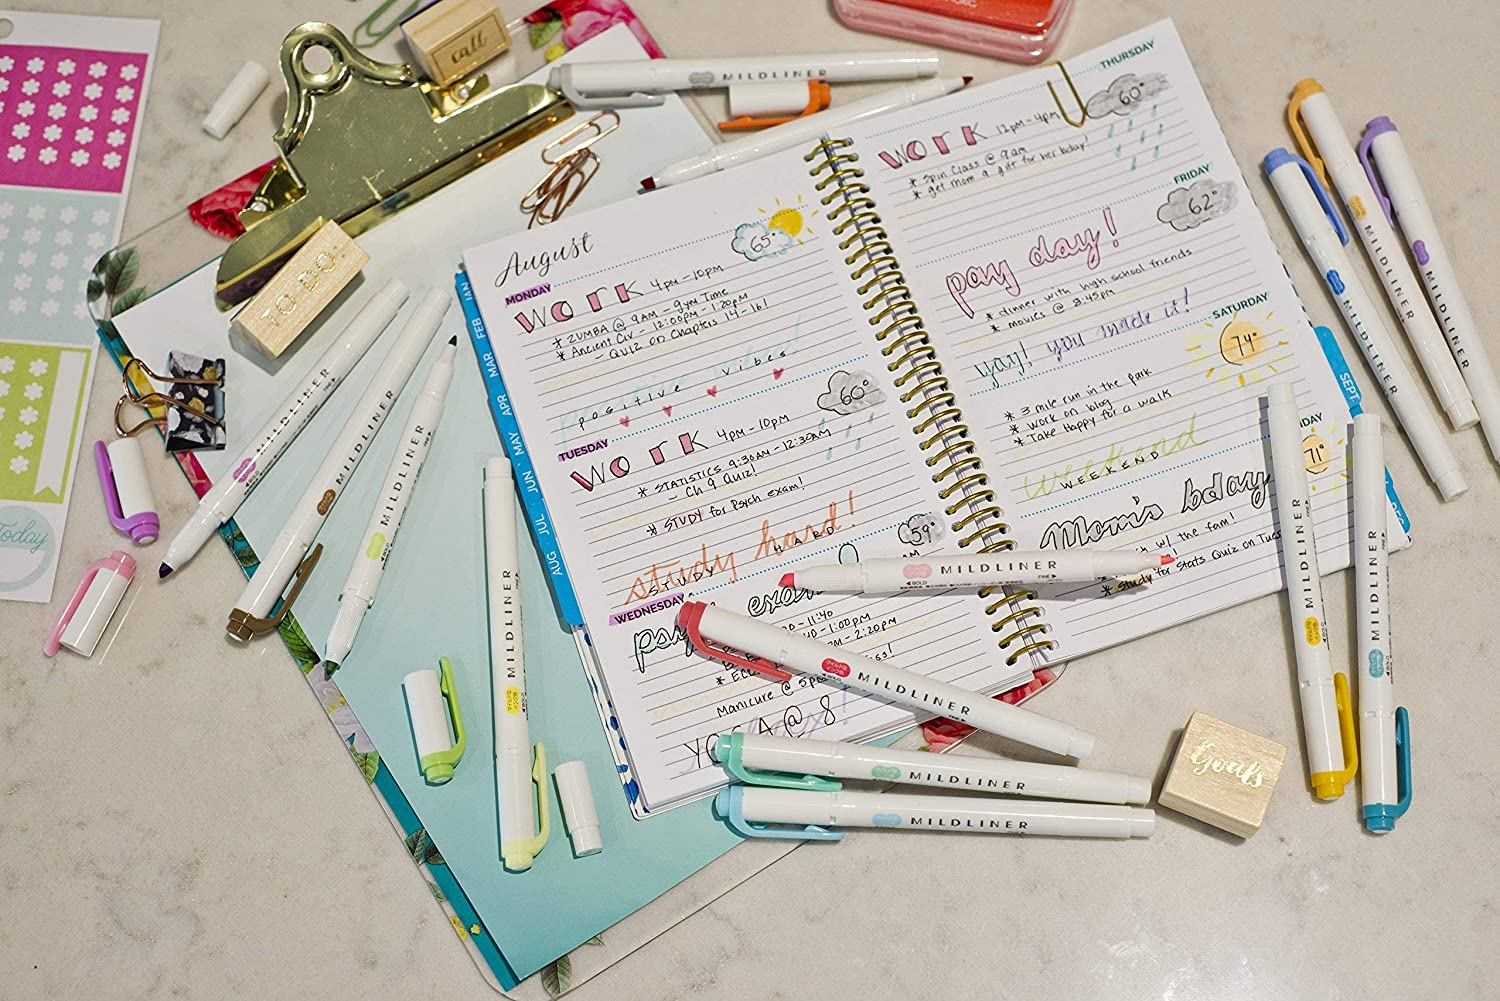 call
TO DO
Today
MILDLINER
MILDLINER
MILDLINER
MILDLINER
MILDLINER
August
MONDAY
65°
WORK 4PM - 10PM
* ZUMBA @ 9AM - GYM TIME
* Ancient Civ - 12:00PM - 1:20PM
- QUIZ ON Chapters 14-16!
positive vibes
TUESDAY
60°
WORK 4PM - 10PM
* STATISTICS 9:30AM - 12:30AM
- Ch 9 Quiz!
* STUDY for Psych exam!
study hard!
STUDY HARD
59°
WEDNESDAY
1:00PM
2:20PM
Manicure @ 5
YOGA @ 8
JAN
FEB
MAR
APR
MAY
JUN
JUL
AUG
THURSDAY
60°
WORK 12PM - 4PM
* Spin Class @ 9am
* get mom a gift for her bday!
FRIDAY
62°
pay day!
* dinner with high school friends
* movies @ 8:45pm
yay! you made it!
SATURDAY
74°
* 3 mile run in the park
* work on blog
* Take Happy for a walk
weekend
WEEKEND
71°
Mom's bday
w/ the fam!
* Study for Stats Quiz on Tues
SEPT
MILDLINER
BOLD
FINE
MILDLINER
MILDLINER
MILDLINER
MILDLINER
MILDLINER
MILDLINER
MILDLINER
MILDLINER
Goals